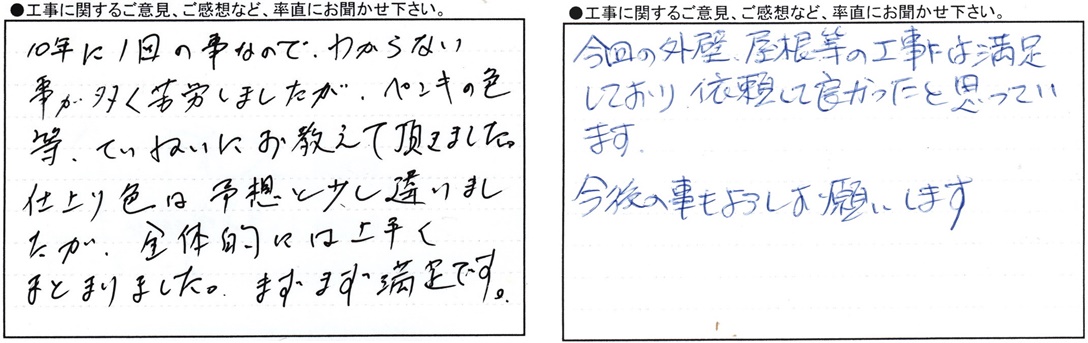 ●工事に関するご意見、ご感想など、率直にお聞かせ下さい。
10年に1回の事なので、わからない
事が多く苦労しましたが、ペンキの色
等、ていねいにお教えて頂きました。
仕上り色は予想と少し違いまし
たが、全体的には上手く
まとまりました。まずまず満足です。
●工事に関するご意見、ご感想など、率直にお聞かせ下さい。
今回の外壁、屋根等の工事は満足
しており、依頼して良かったと思ってい
ます。
今後の事もよろしくお願いします